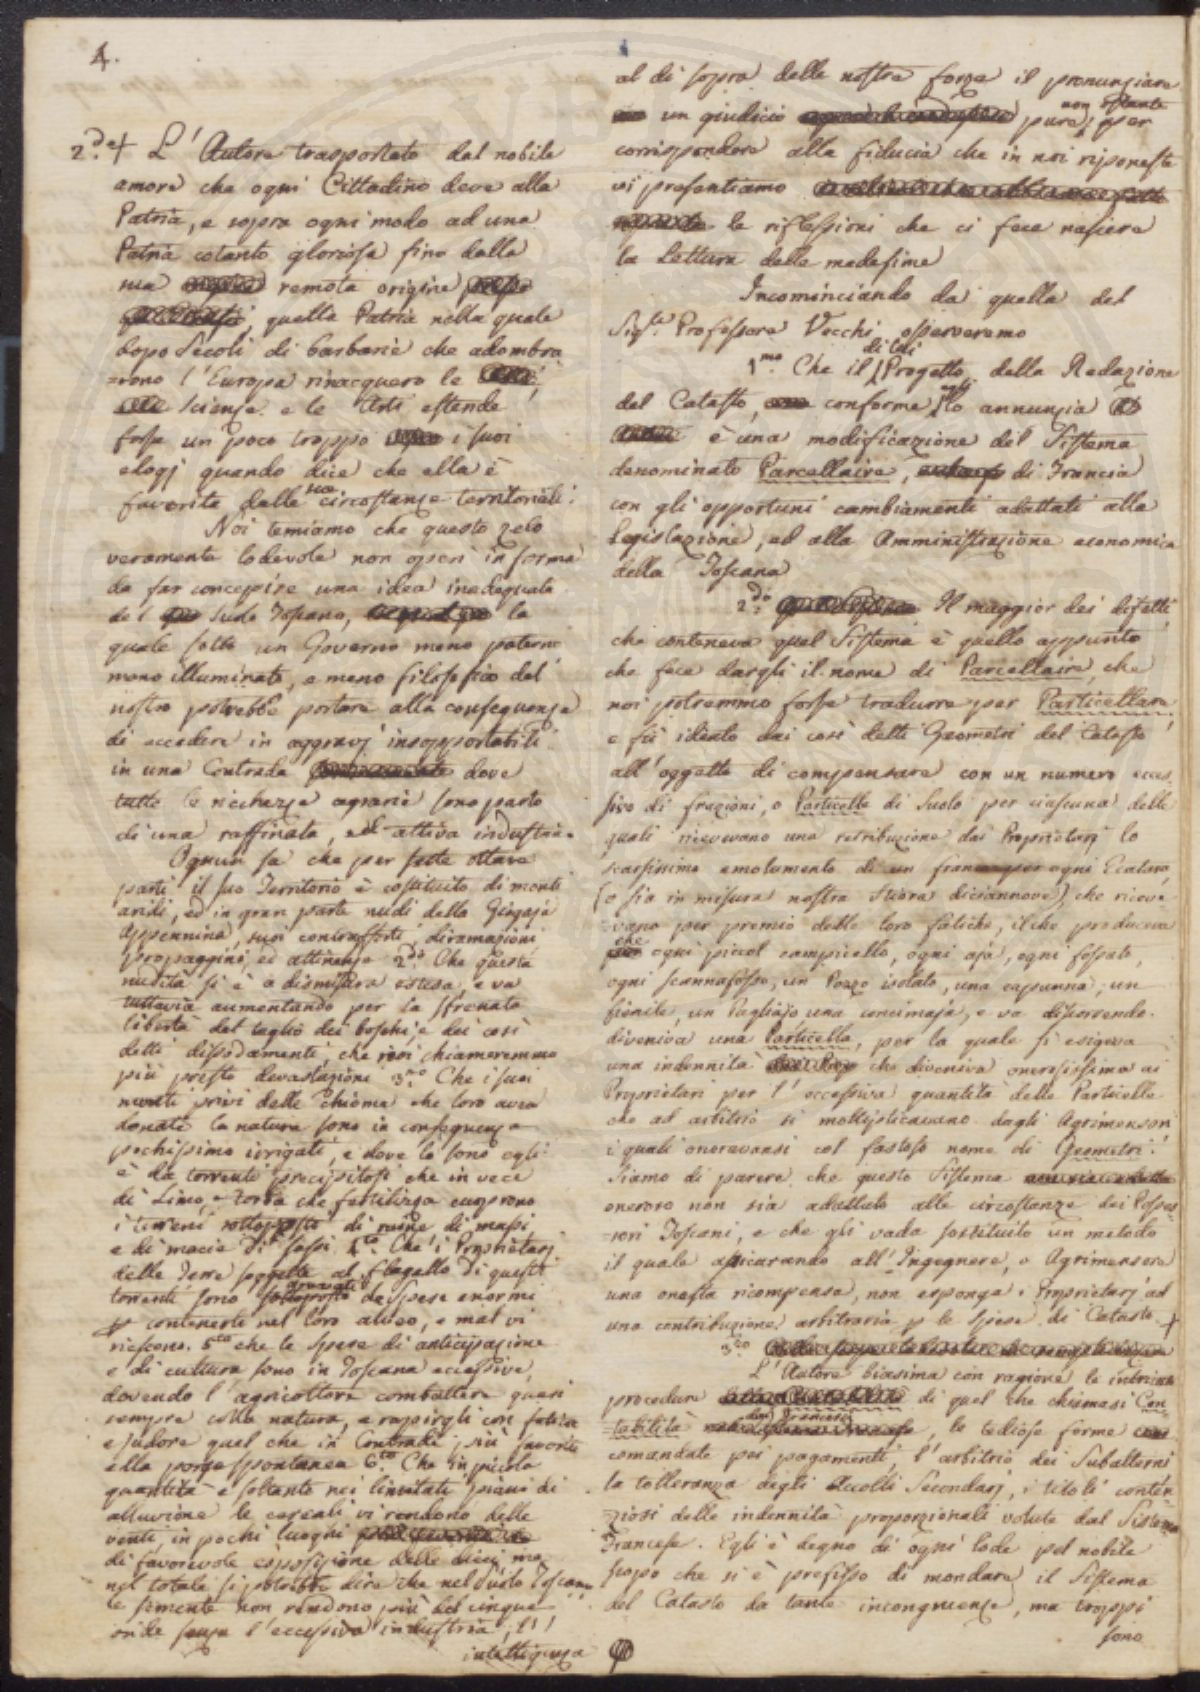 4.
2.do + L' Autore trasportato dal nobile
amore che ogni Cittadino deve alla
Patria, e sopra ogni modo ad una
Patria cotanto gloriosa fino dalla
sua remota origine
quella Patria nella quale
dopo secoli di barbarie che adombra
=rono l'Europa rinacquero le
Scienze e le Arti estende
forse un poco troppo i suoi
elogj quando dice che ella è
favorita dalle sue circostanze territoriali.
Noi temiamo che questo zelo
veramente lodevole non operi in forma
da far concepire una idea inadeguata
del Suolo Toscano, la
quale sotto un Governo meno paterno
meno illuminato, e meno filosofico del
nostro potrebbe portare alla conseguenza
di eccedere in aggravj insopportabili
in una Contrada dove
tutte le ricchezze agrarie sono parto
di una raffinata, ed attiva industria.
Ognun sa che per sette ottave
parti il suo Territorio è costituito di monti
aridi, ed in gran parte nudi della Giogaja
Appennina, suoi contrafforti, diramazioni
propaggini, ed attinenze 2.do Che questa
nudità si è a dismisura estesa, e va
tuttavia aumentando per la sfrenata
libertà del taglio dei boschi, e dei così
detti dissodamenti, che noi chiameremmo
più presto devastazioni 3.zo Che i suoi
monti privi delle chiome che loro avea
donate la natura sono in conseguenza
pochissimo irrigati, e dove lo sono egli
è da torrenti precipitosi che in vece
di Limo, e torba che fertilizza cuoprono
i terreni sottoposti di ruine di massi
e di macie di sassi. 4.to Che i Proprietarj
delle Terre soggette al flagello di questi
torrenti sono sottoposti da spese enormi
p contenerli nel loro alveo, e mal vi
riescono. 5.to che le spese di anticipazione
e di cultura sono in Toscana eccessive,
dovendo l'agricoltore combattere quasi
sempre colla natura, e rapirgli con fatica
e sudore quel che in Contrade più favorite
ella porge spontanea 6.to Che in piccola
quantità e soltanto nei limitati piani di
alluvione le cereali vi rendono delle
venti, in pochi luoghi
di favorevole esposizione delle dieci, ma
nel totale si potrebbe dire che nel Suolo Toscano
le semente non rendono più del cinque
onde senza l'eccessiva industria, l'
intelligenza
al di sopra delle nostre forze il pronunziare
un giudicio pure, non ostante per
corrispondere alla fiducia che in noi riponeste
vi presentiamo
le riflessioni che ci fece nascere
la Lettura delle medesime
Incominciando da quella del
Sig.re Professore Vecchi osserveremo
1.mo Che il di lui Progetto della Redazione
del Catasto, conforme egli lo annunzia
è una modificazione del Sistema
denominato Parcellaire, di Francia
con gli opportuni cambiamenti adattati alla
Legislazione, ed alla Amministrazione economica
della Toscana
2.do Il maggior dei difetti
che conteneva quel Sistema è quello appunto
che fece dargli il nome di Parcellaire, che
noi potremmo forse tradurre per Particellare
e fù ideato dai così detti Geometri del Catasto
all'oggetto di compensare con un numero ecces
sivo di frazioni, o Particelle di Suolo per ciascuna delle
quali ricevevano una retribuzione dai Proprietarj lo
scarsissimo emolumento di un franco per ogni Ecataro
(o sia in misura nostra Stiora diciannove) che riceve
=vano per premio delle loro fatiche, il che produceva
che ogni piccol campicello, ogni aja, ogni fossato,
ogni scannafosso, un Pozzo isolato, una capanna, un
fienile, un Pagliajo una concimaja, e va discorrendo
diveniva una Particella, per la quale si esigeva
una indennità che diveniva onerosissima ai
Proprietari per l'eccessiva quantità delle Particelle
che ad arbitrio si moltiplicavano dagli Agrimensori
i quali onoravansi col fastoso nome di Geometri.
Siamo di parere, che questo Sistema
oneroso non sia adattato alle circostanze dei Posses
=sori Toscani, e che gli vada sostituito un metodo
il quale assicurando all'Ingegnere, o Agrimensore
una onesta ricompensa, non esponga i Proprietarj ad
una contribuzione arbitraria p le Spese di Catasto +
3.zo
L'Autore biasima con ragione le intricate
procedure di quel che chiamasi Con
tabilità dai Francesi, le tediose forme
comandate pei pagamenti, l'arbitrio dei Subalterni
la tolleranza degli Accolli Secondarj, i titoli conten
ziosi delle indennità proporzionali volute dal Sistema
Francese. Egli è degno di ogni lode pel nobile
scopo che si è prefisso di mondare il Sistema
del Catasto da tante incongruenze, ma troppi
sono